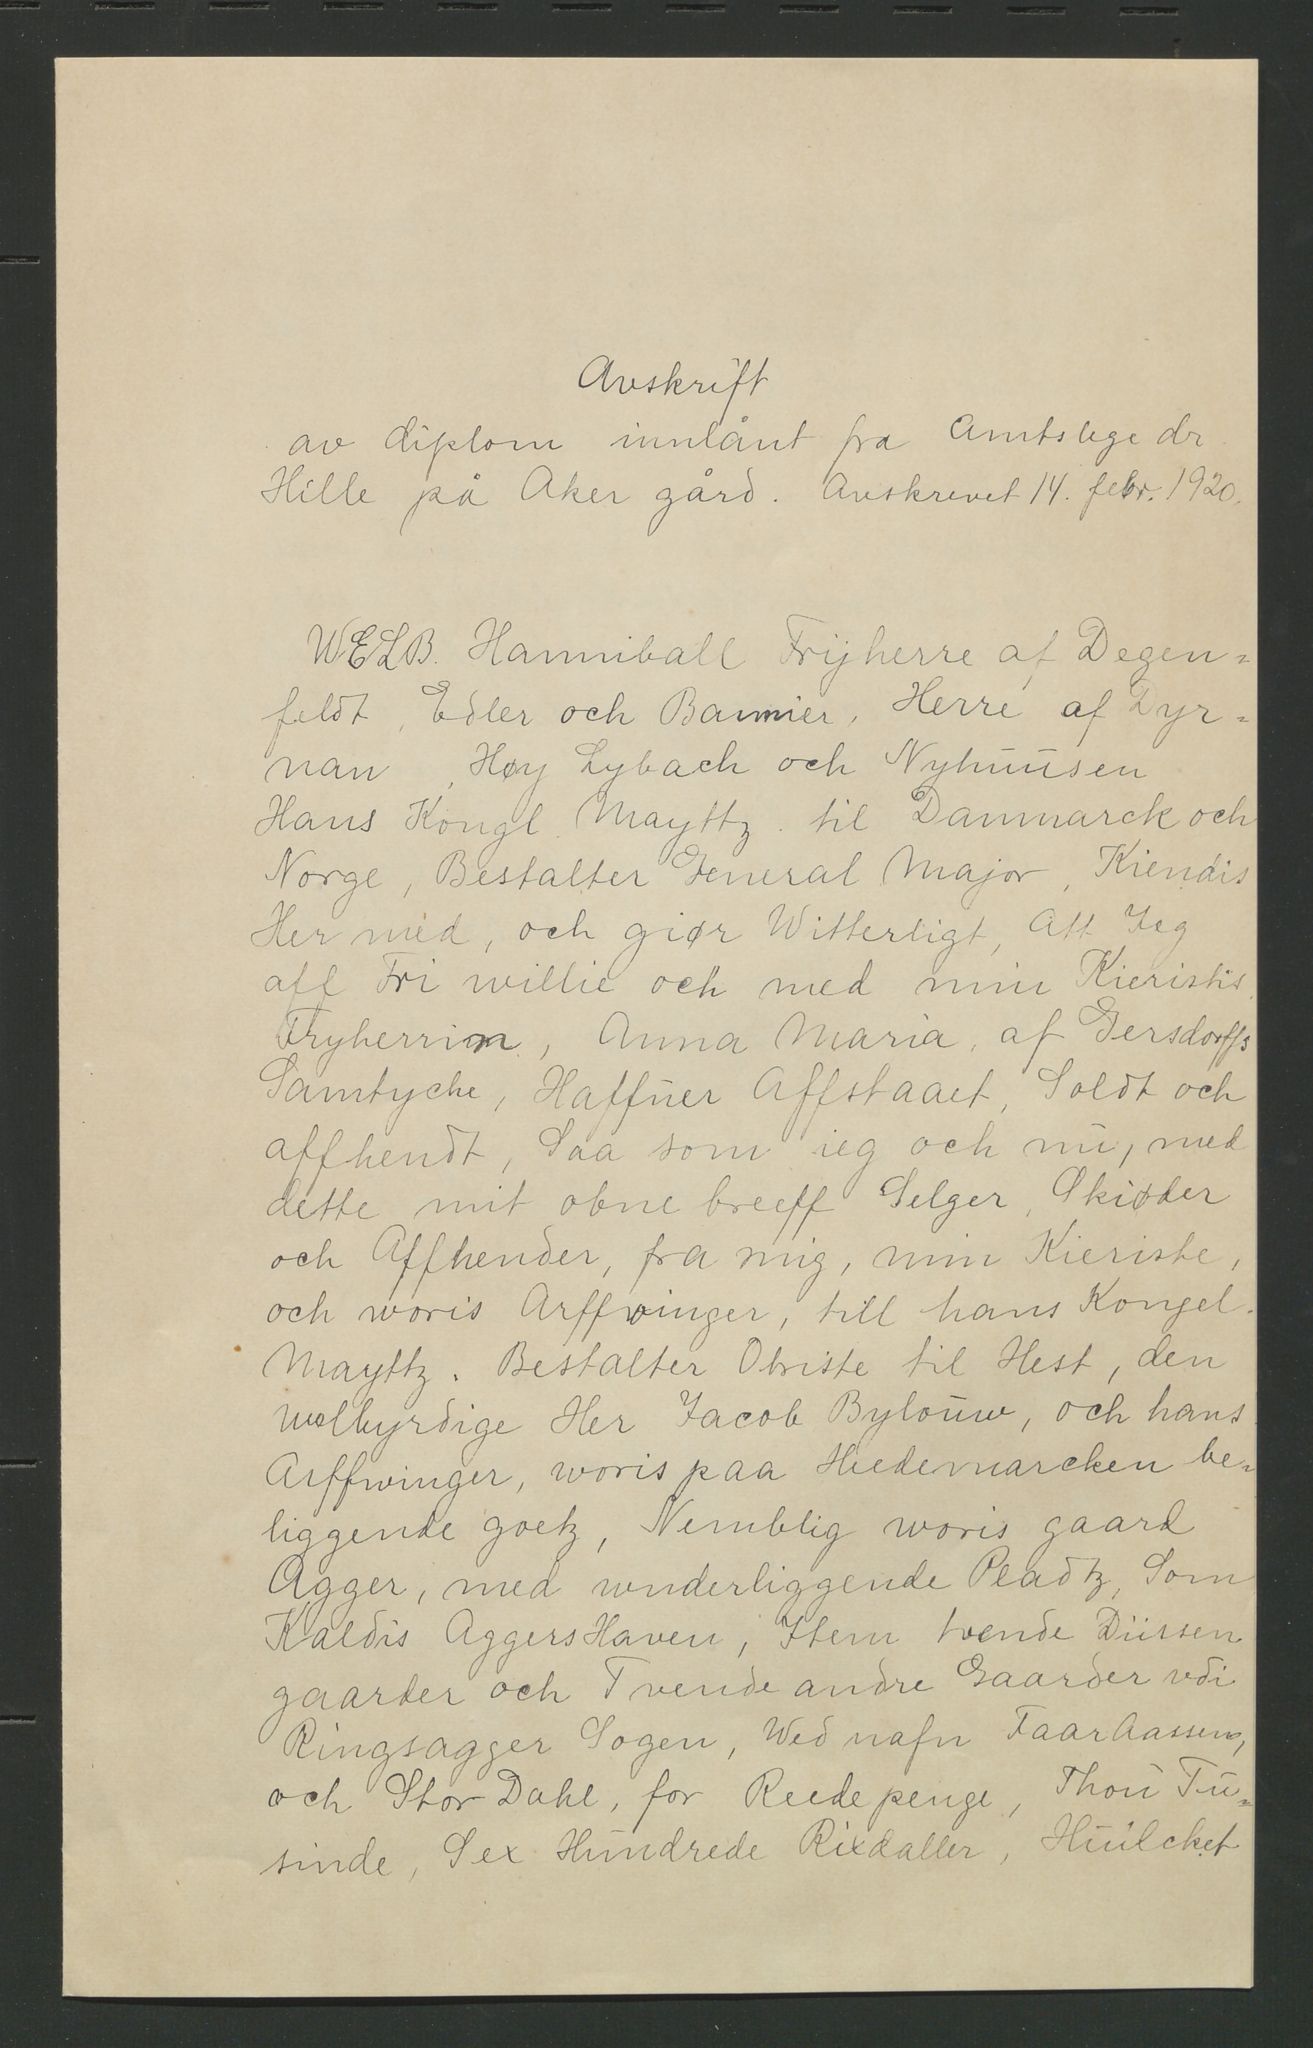 Avskrift
av diplom innlånt fra Amtslege dr.
Hille på Aker gård. Avskrevet 14. febr. 1920.
WELB. Hanniball Frijherre af Degen=
feldt, Edler och Bannier, Herre af Dyr=
nan, Høy Lybach och Nyhuusen
Hans Kongl. Mayttz. til Danmarck och
Norge, Bestalter General Major, Kiendis
Her med, och giør Witterligt, Att Jeg
aff Fri willie och med min Kieristis
Fryherrin, Anna Maria, af Gersdorffs
Samtyche, Haffuer Affstaaet, Soldt och
affhendt, Saa som ieg och nu, med
dette mit obne breeff Selger, Skiøder
och Affhender, fra mig, min Kieriste,
och woris Arffwinger, till hans Kongel.
Mayttz. Bestalter Obriste til Hest, den
welbyrdige Her Jacob Bylouw, och hans
Arffwinger, woris paa Heedemarcken be=
liggende goetz, Nemblig woris gaard
Agger, med wnderliggende Pladtz, Som
Kaldis AggersHaven, Item tvende Düssen
gaarder och Tvende andre Gaarder vdi
Ringsagger Sogen, Wed nafn FaarAassen,
och Stor Dahl, for Reede penge, Thou Tu=
sinde, Sex Hundrede Rixdaller, Huilcket